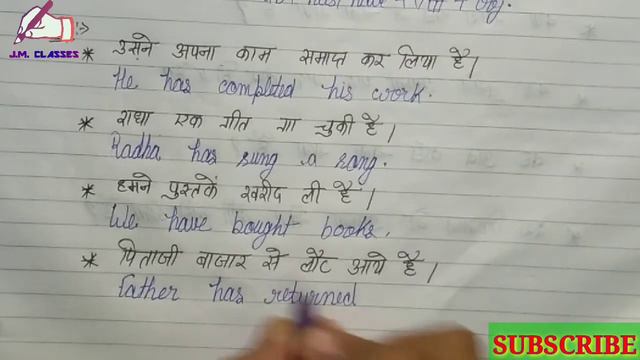 has/have + VIII + Obj.
J.M. CLASSES
* उसने अपना काम समाप्त कर लिया है।
He has completed his work.
* राधा एक गीत गा चुकी है।
Radha has sung a song.
* हमने पुस्तकें खरीद ली है।
We have bought books.
* पिताजी बाजार से लौट आये है।
Father has returned
SUBSCRIBE